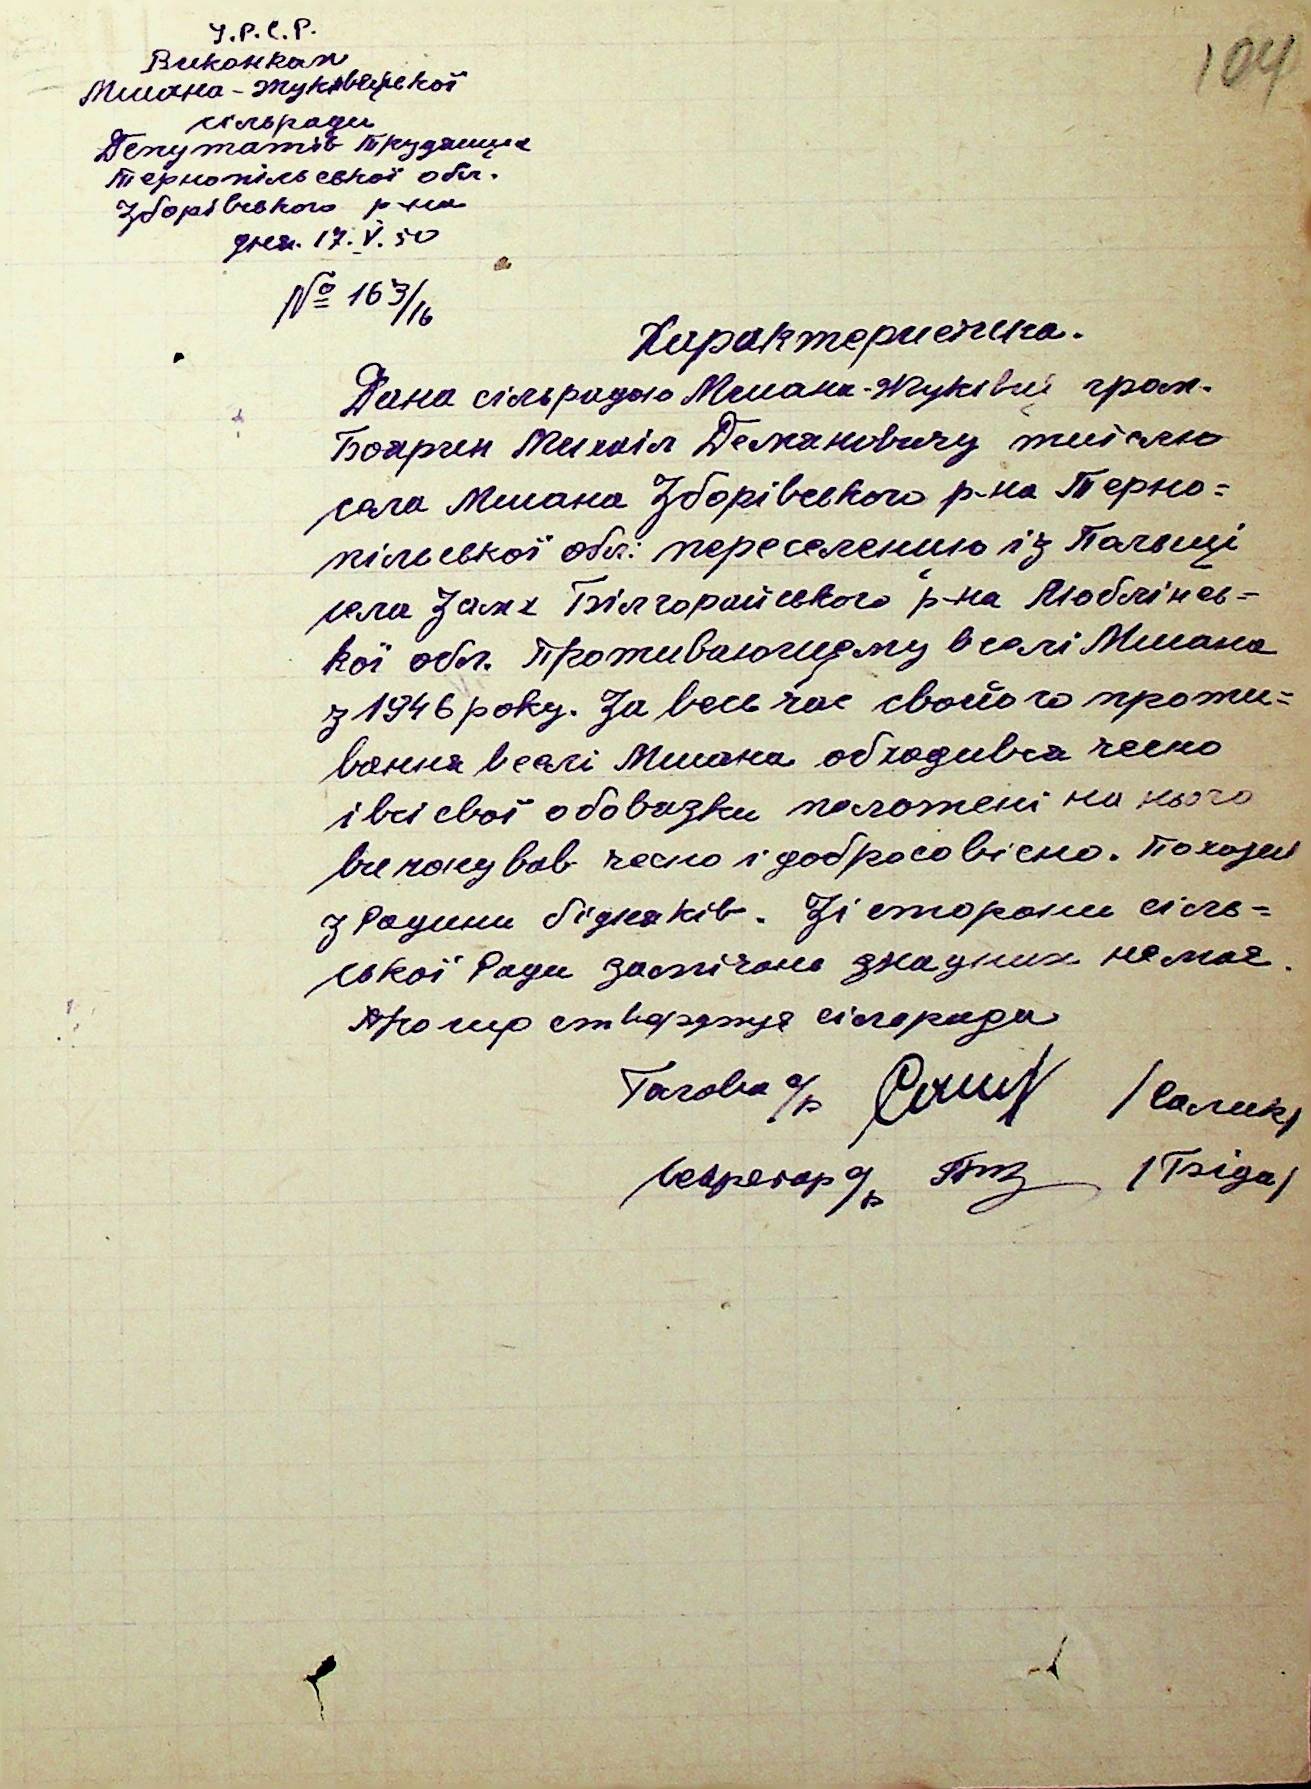 104
У.Р.С.Р.
Виконком
Мшана-Жуковецької
сільради
Депутатів Трудящих
Тернопільської обл.
Зборівського р-на
дня. 17.V.50
№ 163/16
Характеристика.
Дана сільрадою Мшана-Жуківці гром.
Боярин Михаіл Демановичу жителю
села Мшана Зборівського р-на Терно=
пільської обл. переселеному із Польщі
села Замх Білгорайського р-на Люблінсь=
кої обл. Проживаючему в селі Мшана
з 1946 року. За весь час свойого прожи=
вання в селі Мшана обходився чесно
і всі свої обовязки положені на нього
виконував чесно і добросовісно. Походи
з Родини бідняків. Зі сторони сіль=
ської Ради замічань жадних немає.
Про що стверджує сільрада
Голова с/р /Салик/
Секретар с/р /Бзіда/